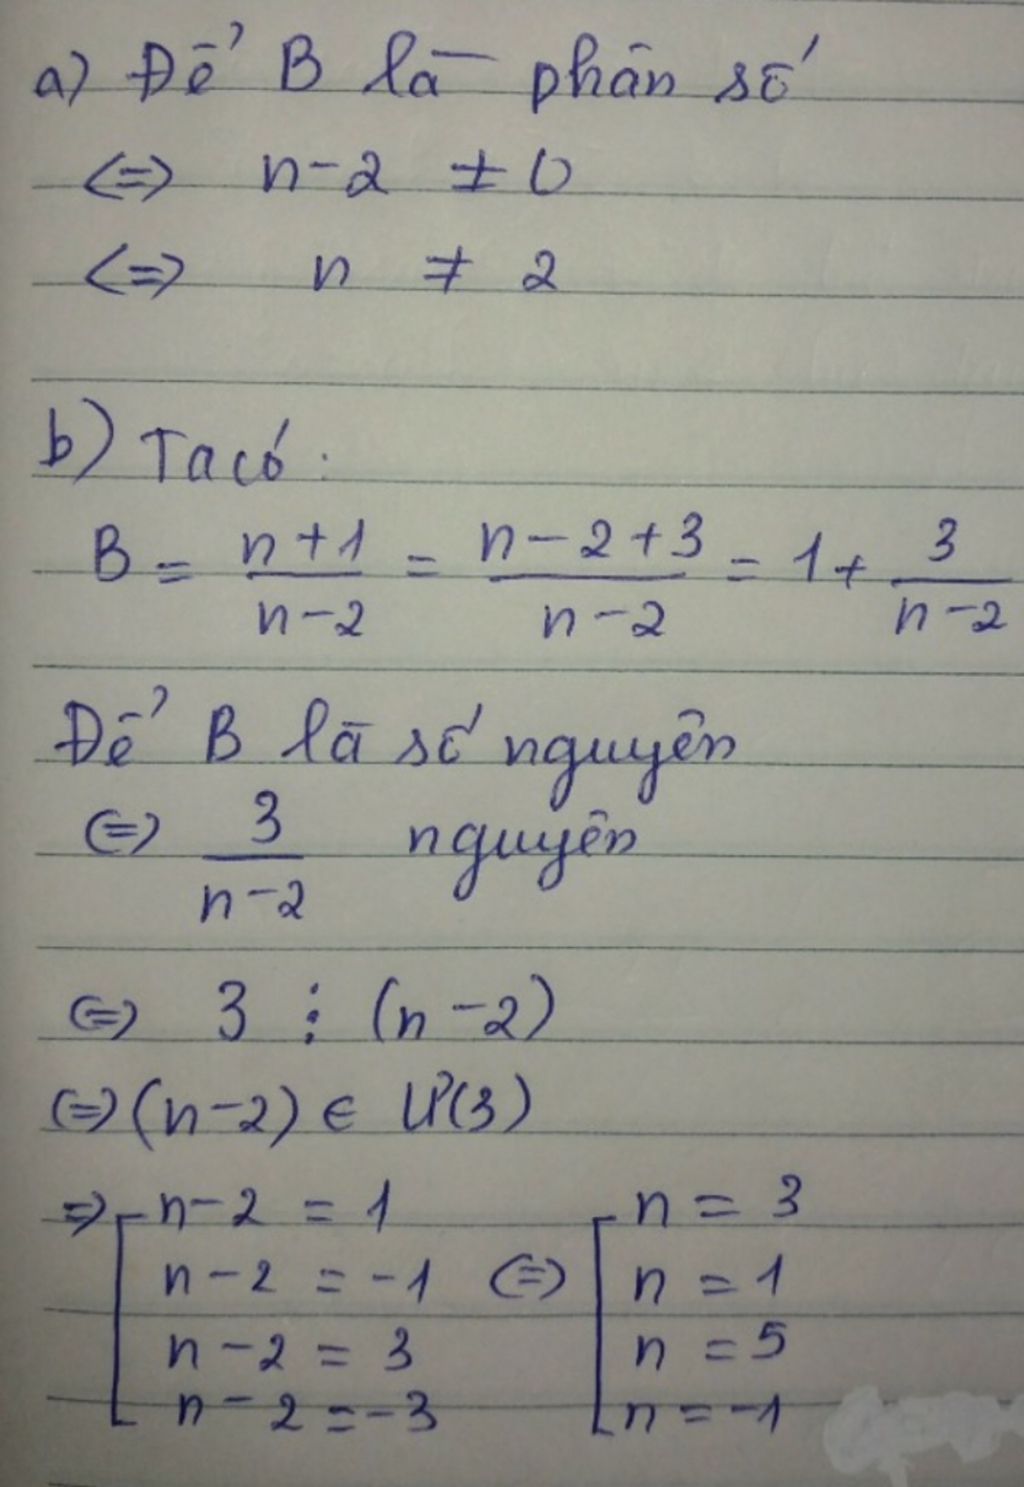 a) Để B là phân số
<=> n-2 ≠ 0
<=> n ≠ 2
b) Ta có:
B = (n+1)/(n-2) = (n-2+3)/(n-2) = 1 + 3/(n-2)
Để B là số nguyên
<=> 3/(n-2) nguyên
<=> 3 ⋮ (n-2)
<=> (n-2) ∈ Ư(3)
=> [ n-2 = 1 [ n = 3
n-2 = -1 <=> n = 1
n-2 = 3 n = 5
n-2 = -3 n = -1